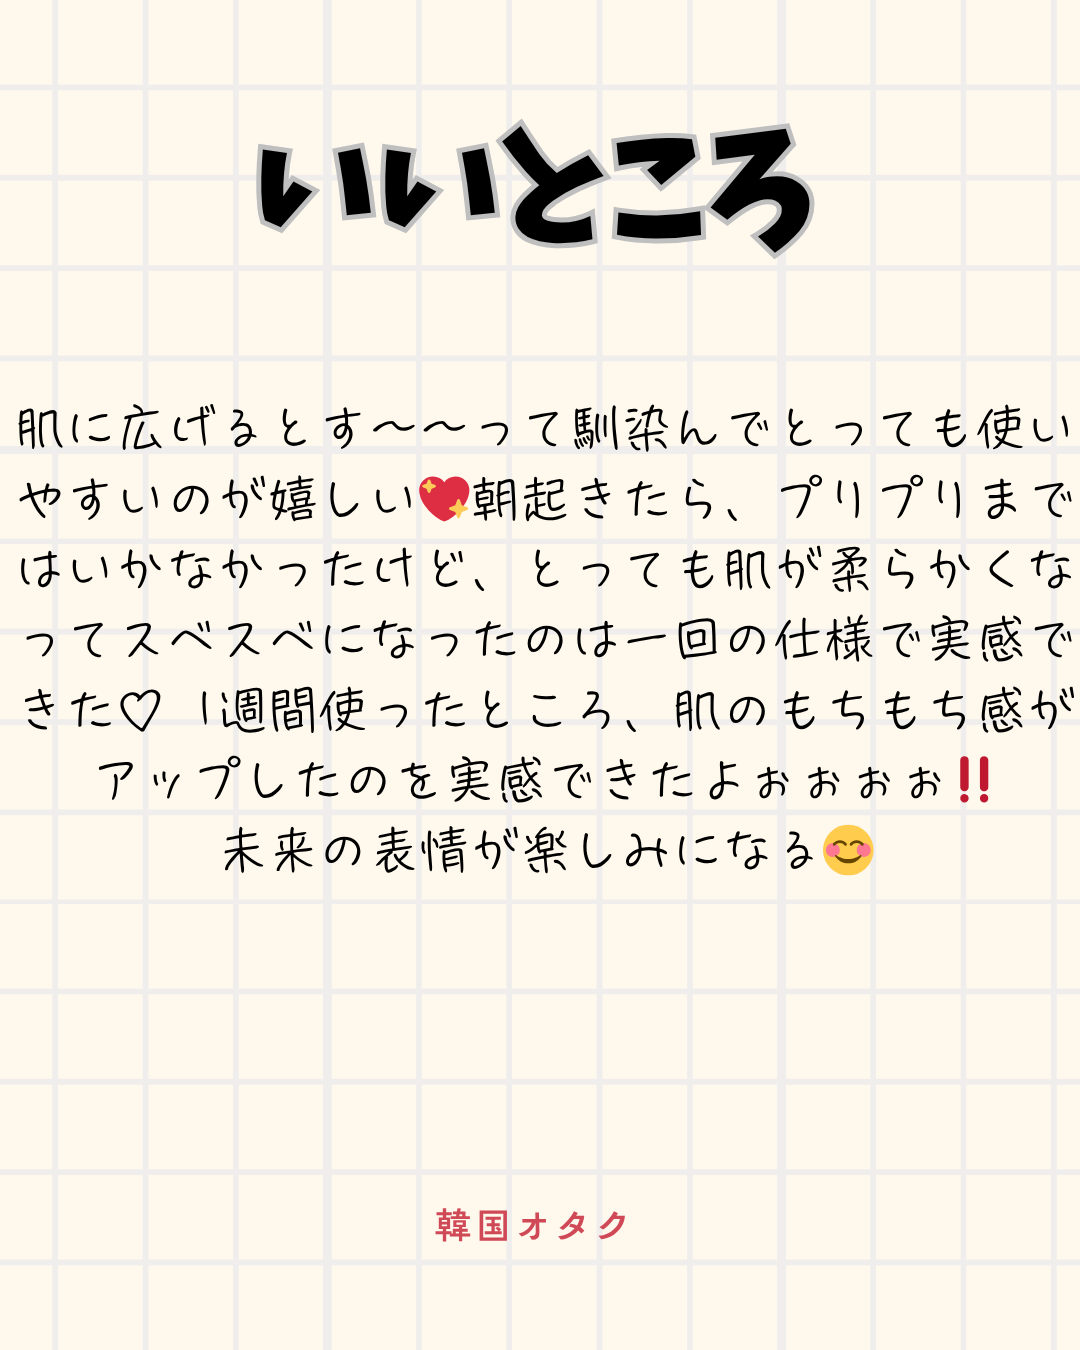 いいところ
肌に広げるとす〜〜って馴染んでとっても使い
やすいのが嬉しい💖朝起きたら、プリプリまで
はいかなかったけど、とっても肌が柔らかくな
ってスベスベになったのは一回の仕様で実感で
きた♡ 1週間使ったところ、肌のもちもち感が
アップしたのを実感できたよぉぉぉぉ‼️
未来の表情が楽しみになる😊
韓国オタク